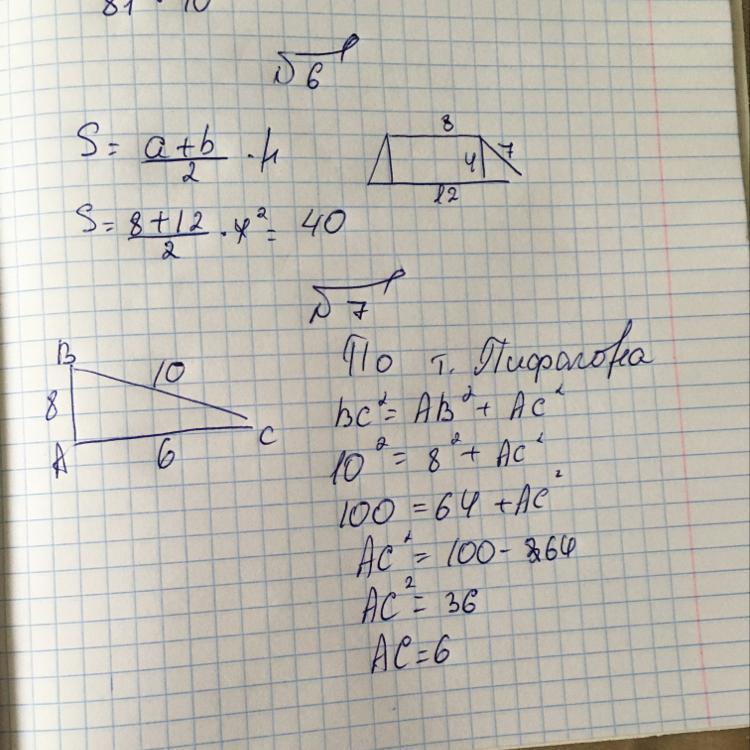 81 · 10
№ 6
S = (a + b)/2 · h
8
4 7
12
S = (8 + 12)/2 · 4² = 40
№ 7
По т. Пифагора
B
10
8
A
6
C
BC² = AB² + AC²
10² = 8² + AC²
100 = 64 + AC²
AC² = 100 - 64
AC² = 36
AC = 6